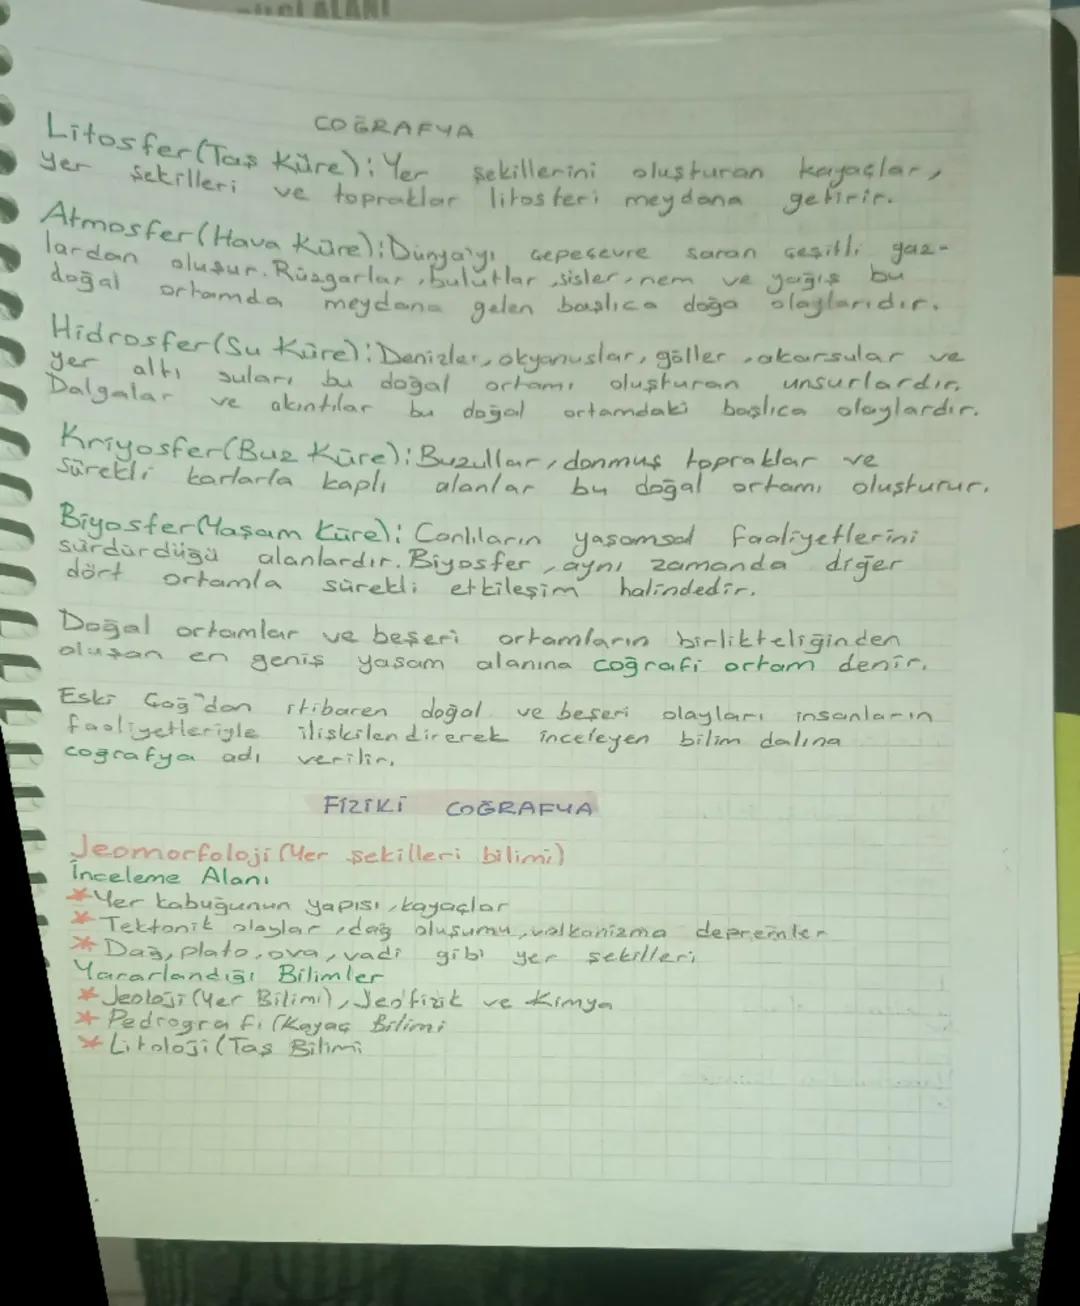 COĞRAFYA
Litosfer (Taş Küre): Yer şekillerini oluşturan kayaçlar,
yer şekilleri ve topraklar litosferi meydana getirir.
Atmosfer (Hava Küre): Dünya'yı çepeçevre saran çeşitli gaz-
lardan oluşur. Rüzgarlar, bulutlar, sisler, nem ve yağış bu
doğal ortamda meydana gelen başlıca doğa olaylarıdır.
Hidrosfer (Su Küre): Denizler, okyanuslar, göller, akarsular ve
yer altı suları bu doğal ortamı oluşturan unsurlardır.
Dalgalar ve akıntılar bu doğal ortamdaki başlıca olaylardır.
Kriyosfer (Buz Küre): Buzullar, donmuş topraklar ve
sürekli karlarla kaplı alanlar bu doğal ortamı oluşturur.
Biyosfer (Yaşam Küre): Canlıların yaşamsal faaliyetlerini
sürdürdüğü alanlardır. Biyosfer, aynı zamanda diğer
dört ortamla sürekli etkileşim halindedir.
Doğal ortamlar ve beşeri ortamların birlikteliğinden
oluşan en geniş yaşam alanına coğrafi ortam denir.
Eski Çağ'dan itibaren doğal ve beşeri olayları insanların
faaliyetleriyle ilişkilendirerek inceleyen bilim dalına
coğrafya adı verilir.
FİZİKİ COĞRAFYA
Jeomorfoloji (Yer şekilleri bilimi)
İnceleme Alanı
* Yer kabuğunun yapısı, kayaçlar
* Tektonik olaylar, dağ oluşumu, volkanizma depremler
* Dağ, plato, ova, vadi gibi yer şekilleri
Yararlandığı Bilimler
* Jeoloji (Yer Bilimi), Jeofizik ve Kimya
* Pedrografi (Kayaç Bilimi
* Litoloji (Taş Bilimi